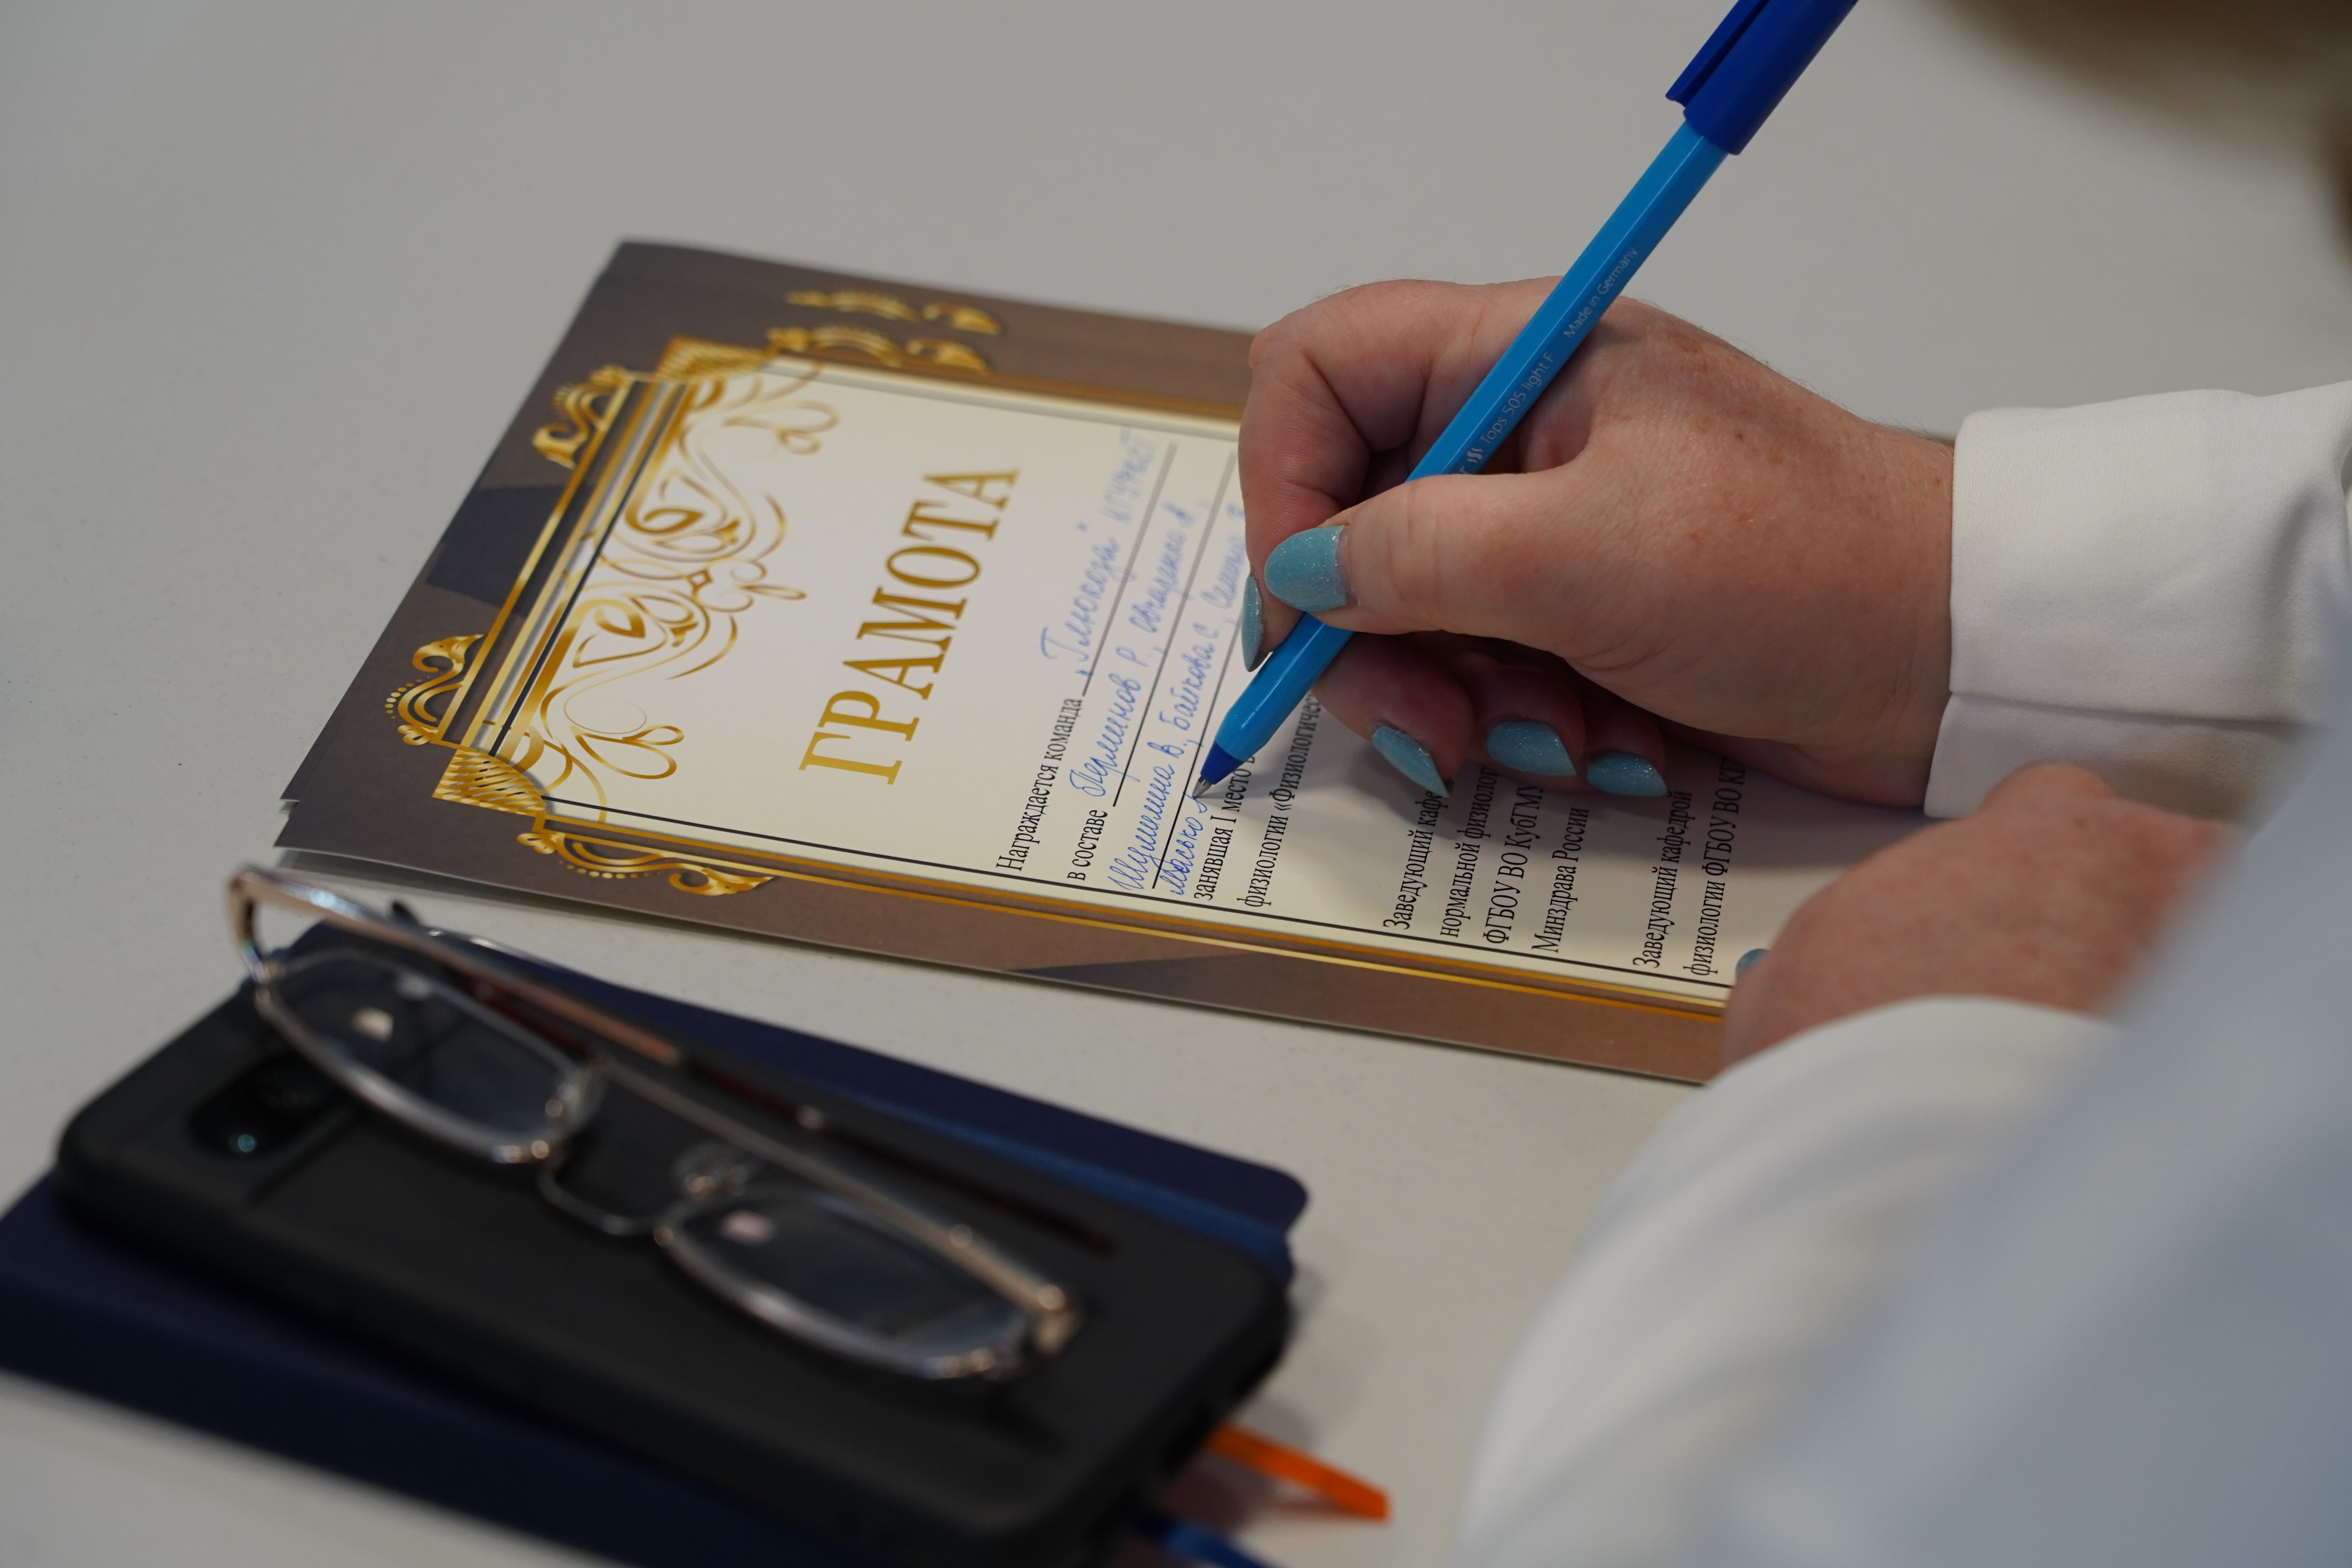 ГРАМОТА
Награждается команда „Глюкоза"
в составе Перминов Р.,
Байкова С.,
Моською
занявшая I место в
физиологии «Физиологичес
Заведующий кафе
нормальной физиолог
ФГБОУ ВО КубГМУ
Минздрава России
Заведующий кафедрой
физиологии ФГБОУ ВО
Tops 505 light F Made in Germany